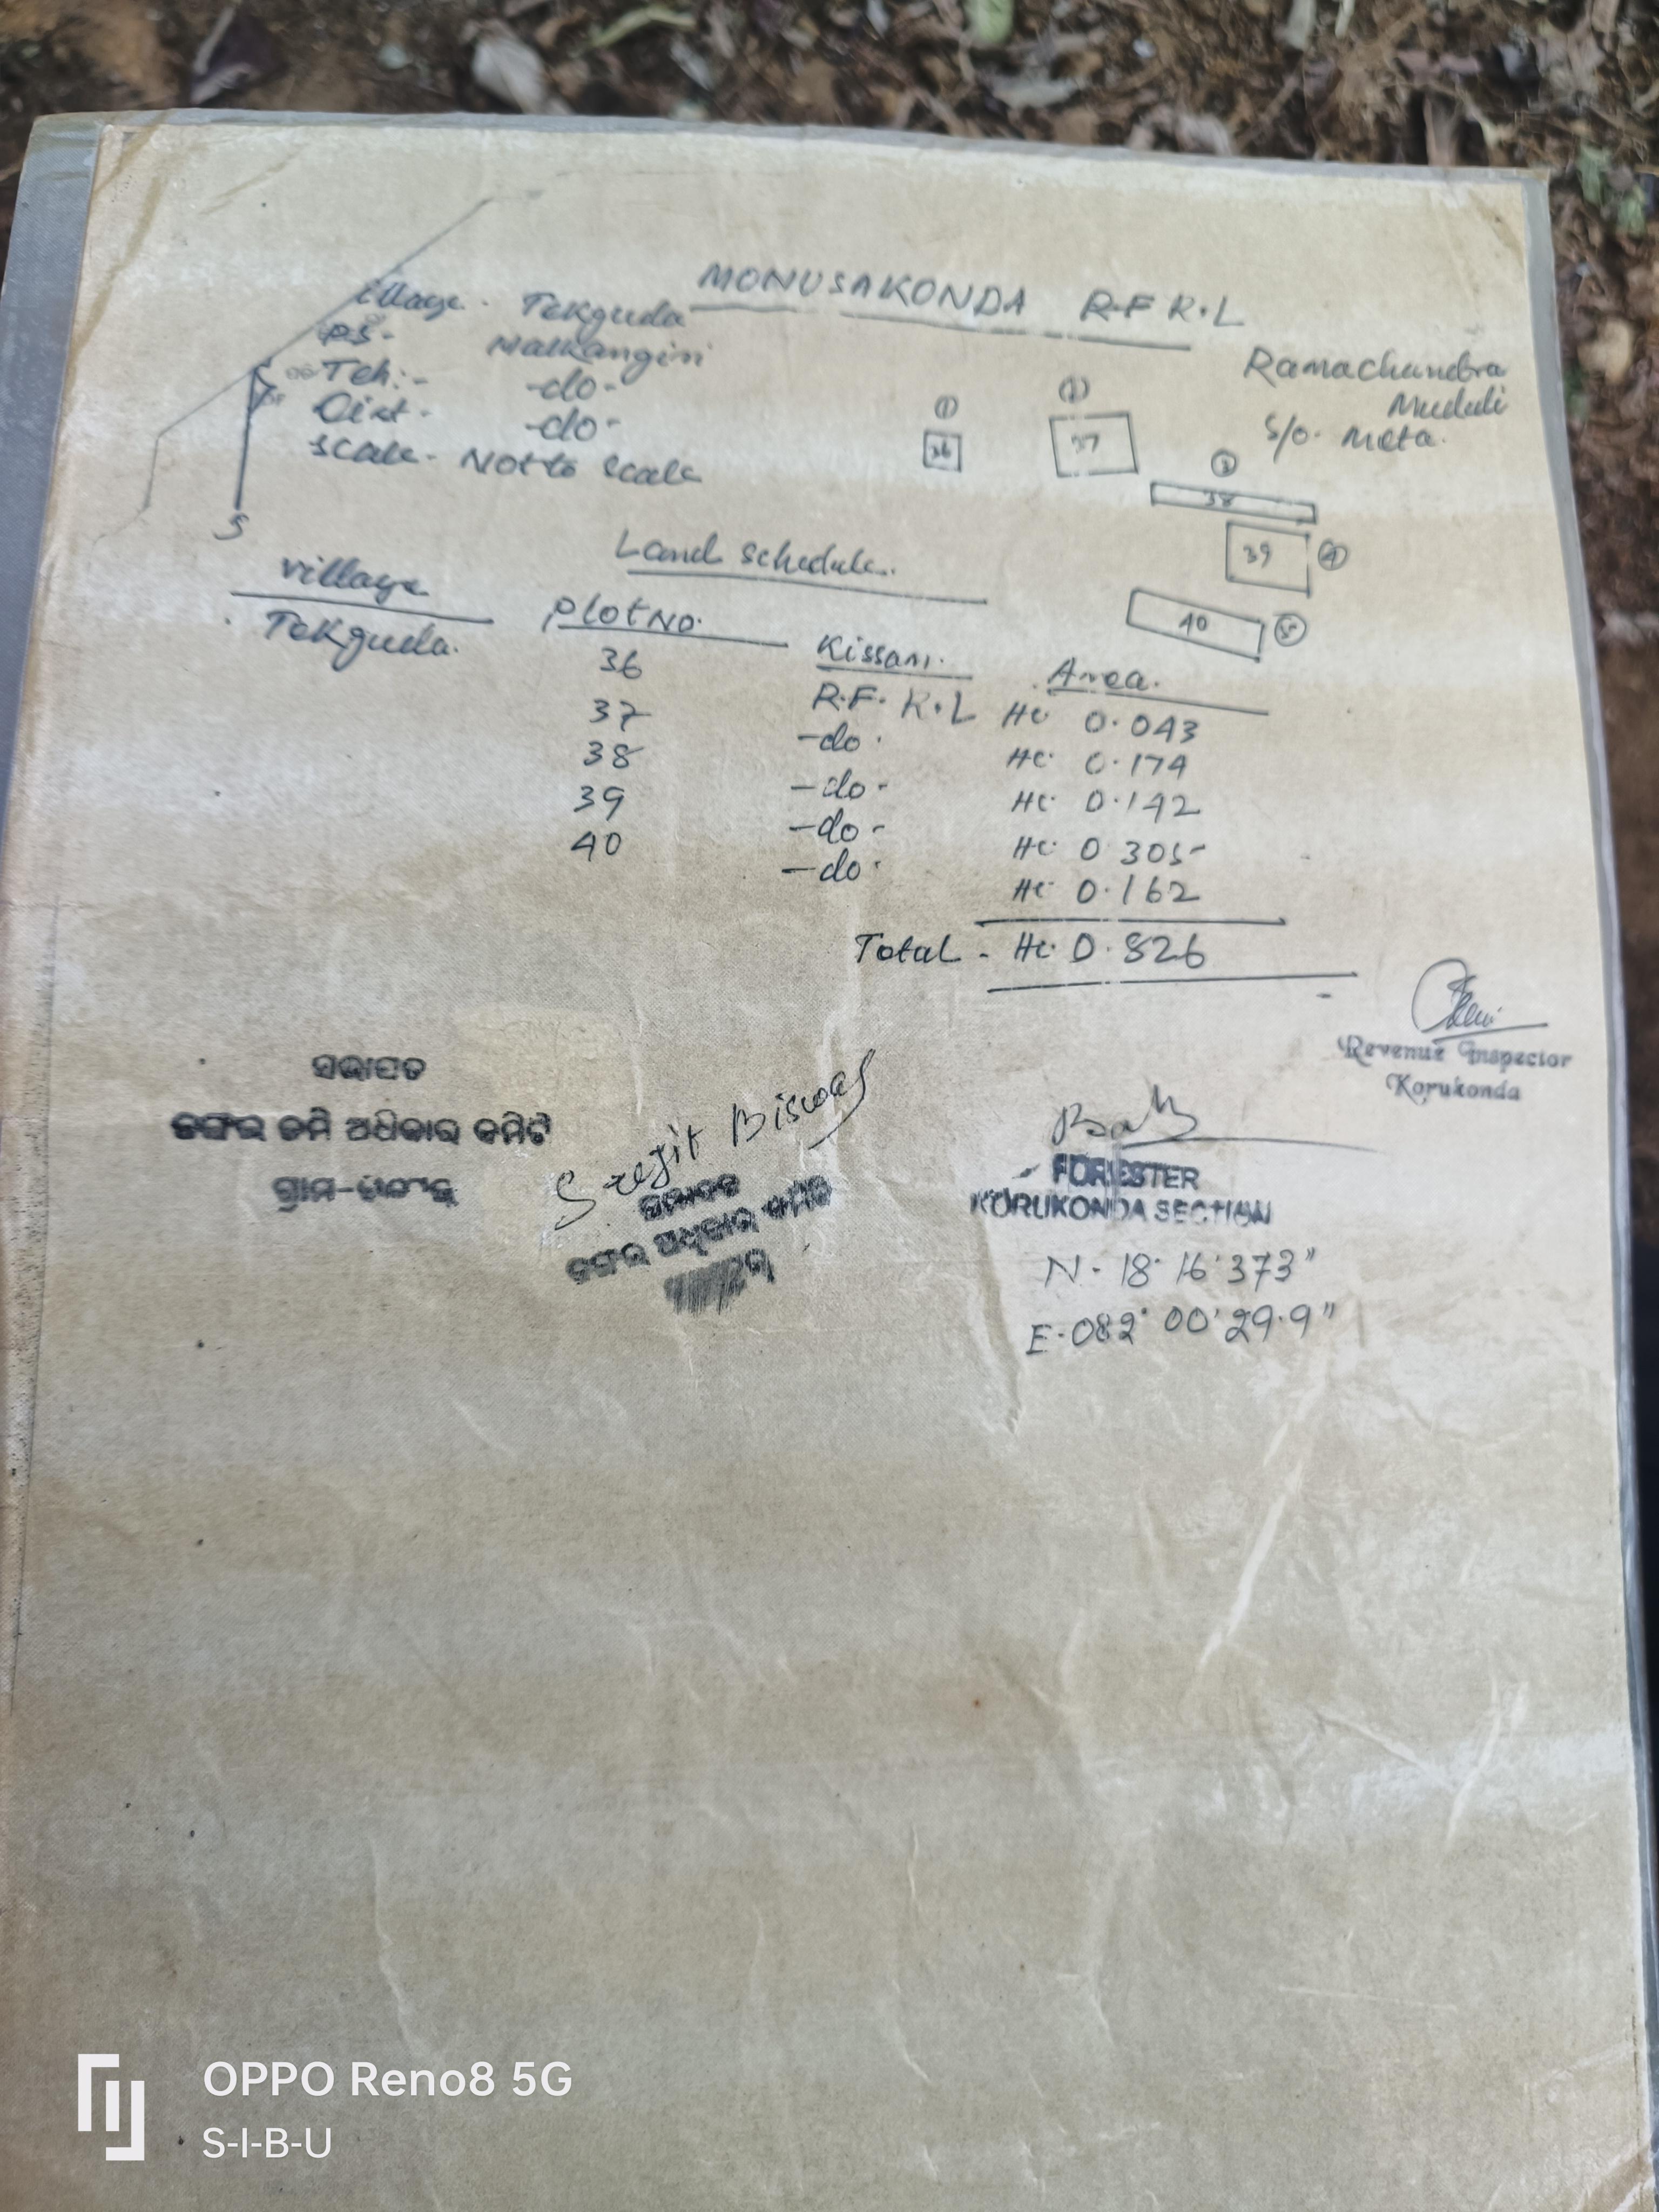 MONUSAKONDA R.F R.L
Village - Tekguda
PS- Malkangiri
Teh:- -do-
Dist- -do-
Scale- Not to Scale
Ramachandra
Muduli
S/o- Meta.
S
① ② ③ ④ ⑤
36 37 38 39 40
Land Schedule.
Village Plot No. Kissam. Area.
Tekguda. 36 R.F. R.L Hc 0.043
37 -do- Hc 0.174
38 -do- Hc 0.142
39 -do- Hc 0.305
40 -do- Hc 0.162
Total - Hc 0.826
Revenue Inspector
Korukonda
ସଭାପତି
ଜଙ୍ଗଲ ଜମି ଅଧିକାର କମିଟି
ଗ୍ରାମ-
Srejit Biswas
ଜଙ୍ଗଲ
FORESTER
KORUKONDA SECTION
N- 18° 16' 373"
E-082° 00' 29.9"
OPPO Reno8 5G
S-I-B-U